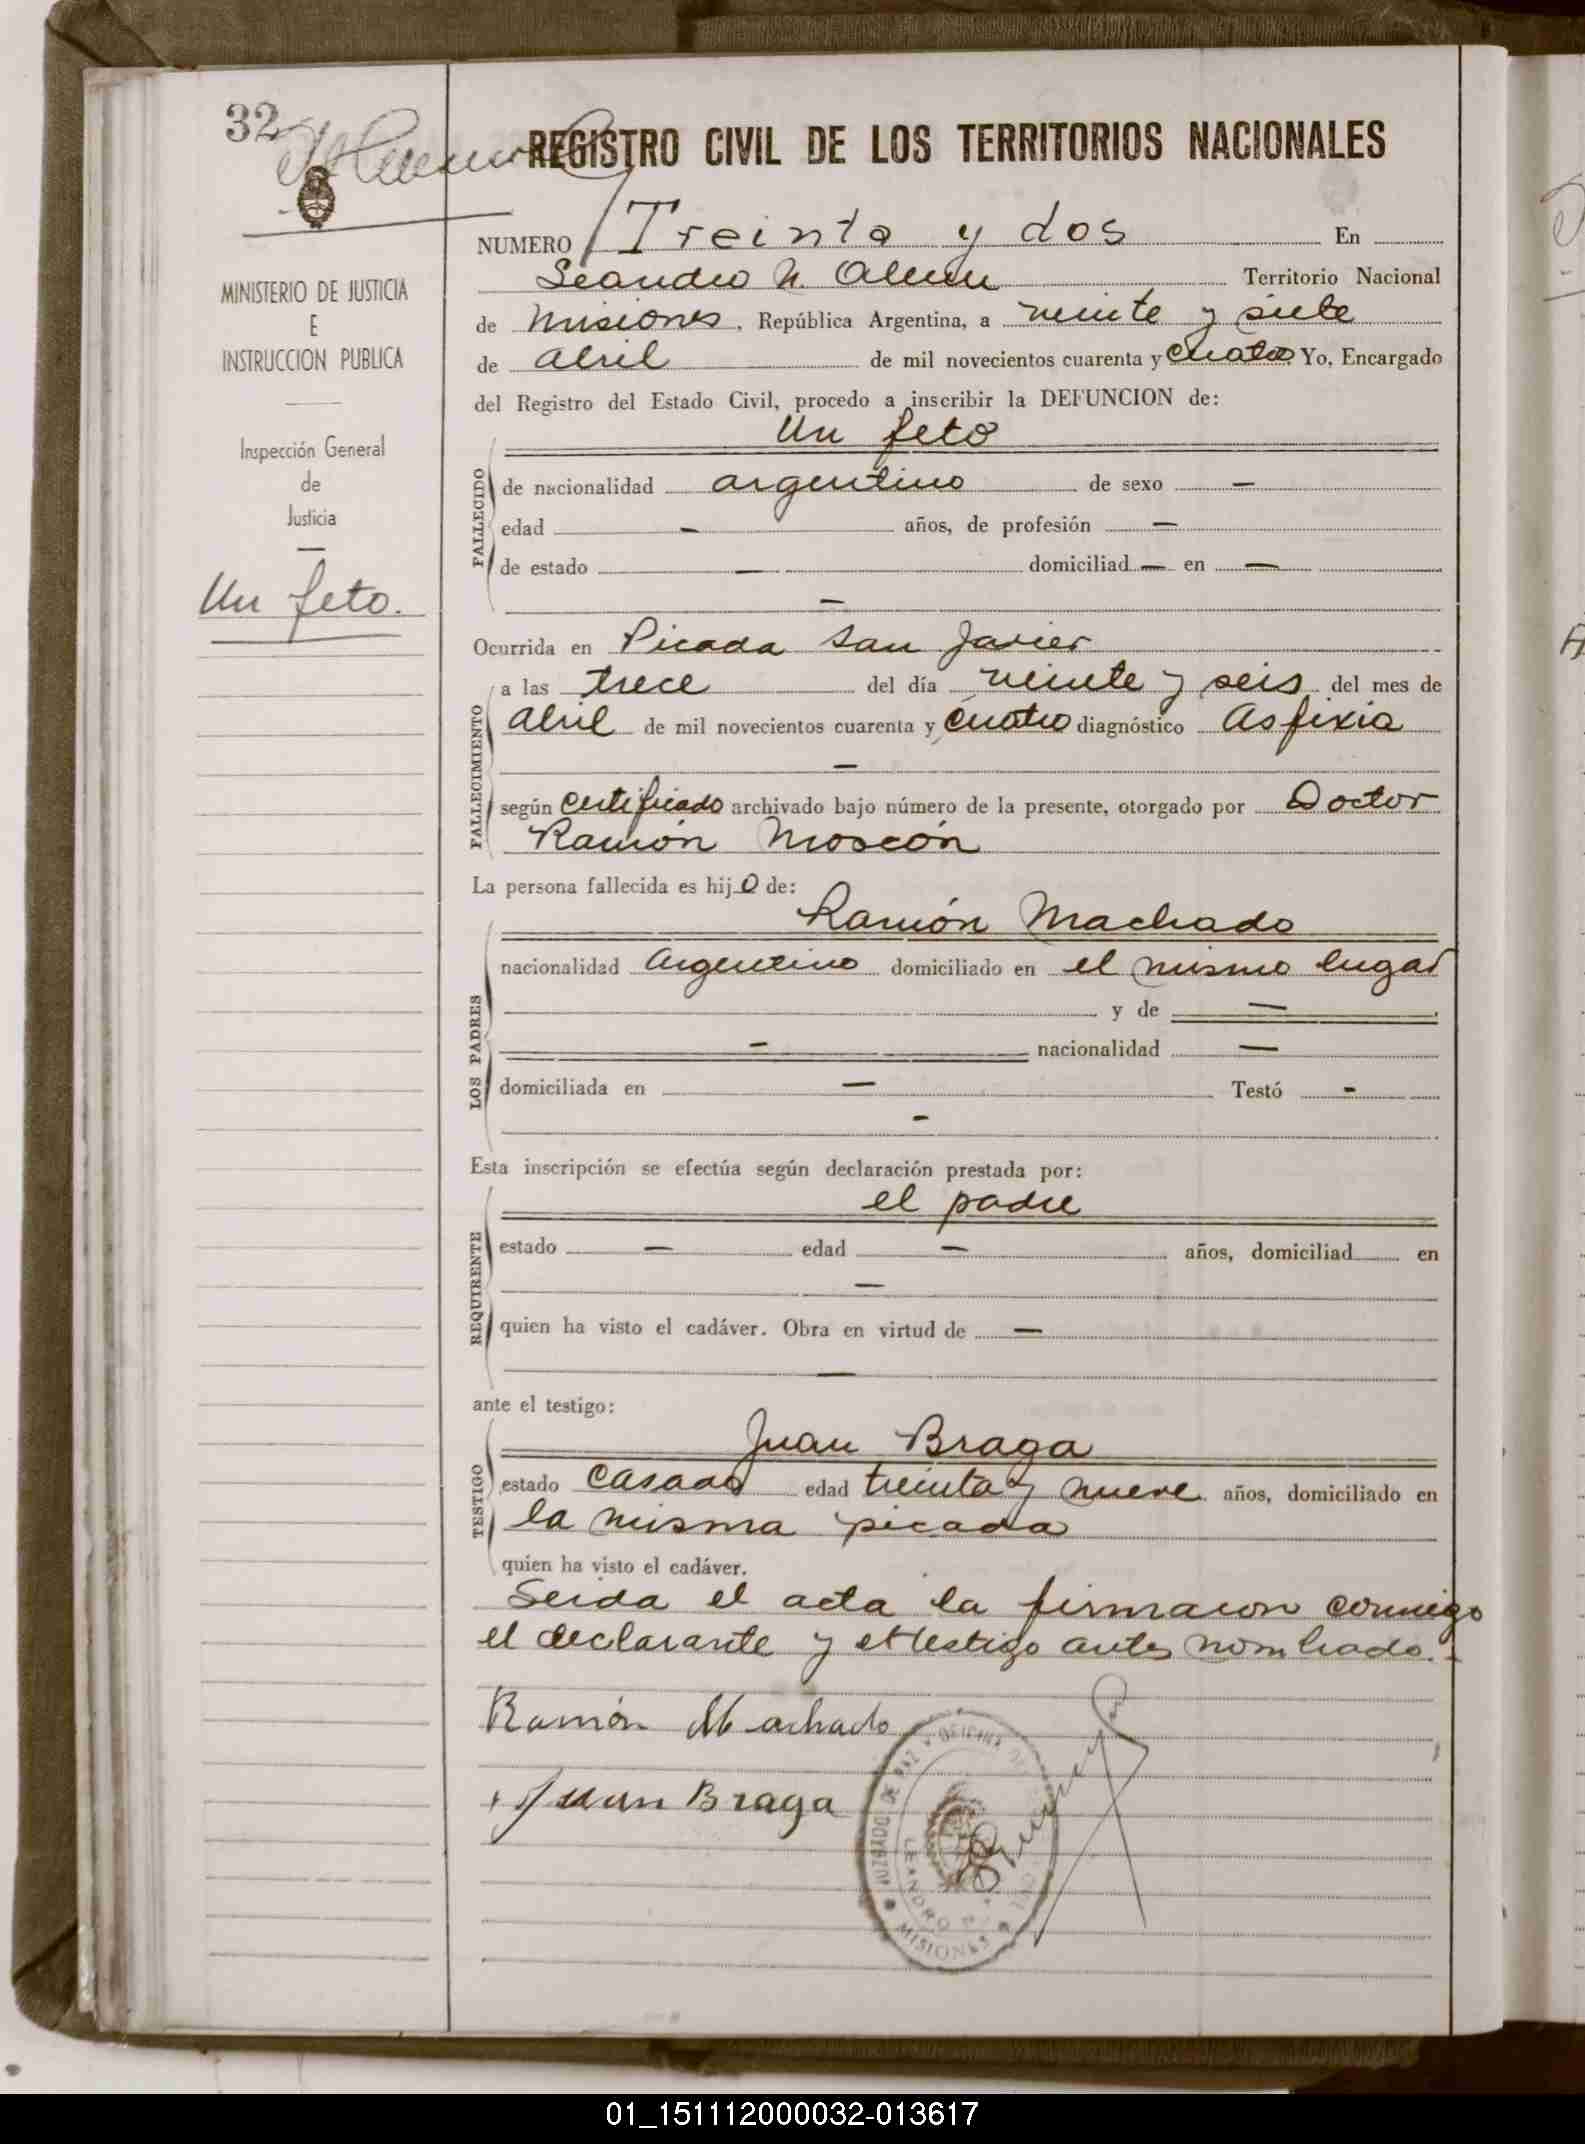 32
REGISTRO CIVIL DE LOS TERRITORIOS NACIONALES
MINISTERIO DE JUSTICIA
E
INSTRUCCION PUBLICA
Inspección General
de
Justicia
Un feto.
NUMERO Treinta y dos En
Leandro N. Alem Territorio Nacional
de Misiones, República Argentina, a veinte y siete
de abril de mil novecientos cuarenta y cuatro Yo, Encargado
del Registro del Estado Civil, procedo a inscribir la DEFUNCION de:
Un feto
FALLECIDO
de nacionalidad argentino de sexo —
edad — años, de profesión —
de estado — domiciliad — en —
—
Ocurrida en Picada San Javier
FALLECIMIENTO
a las trece del día veinte y seis del mes de
abril de mil novecientos cuarenta y cuatro diagnóstico Asfixia
—
según certificado archivado bajo número de la presente, otorgado por Doctor
Ramón Moscón
La persona fallecida es hijo de:
LOS PADRES
Ramón Machado
nacionalidad argentino domiciliado en el mismo lugar
y de —
— nacionalidad —
domiciliada en — Testó -
-
Esta inscripción se efectúa según declaración prestada por:
REQUIRENTE
el padre
estado — edad — años, domiciliad en
—
quien ha visto el cadáver. Obra en virtud de —
—
ante el testigo:
TESTIGO
Juan Braga
estado casado edad treinta y nueve años, domiciliado en
la misma picada
quien ha visto el cadáver.
Leida el acta la firmaron conmigo
el declarante y el testigo antes nombrado.-
Ramón Machado
Juan Braga
JUZGADO DE PAZ Y OFICINA DEL
LEANDRO N.
MISIONES
01_151112000032-013617